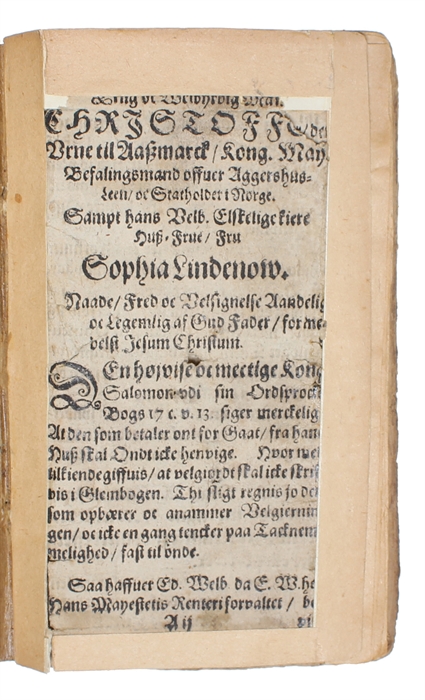 Erlig oc Velbyrdig Mand.
CHRISTOFFER
Vrne til Aaßmarck / Kong. May.
Befalingsmand offuer Aggershus-
Leen / oc Statholder i Norge.
Sampt hans Velb. Elskelige kiere
Huß-Frue / Fru
Sophia Lindenow.
Naade / Fred oc Velsignelse Aandelig
oc Legemlig af Gud Fader / for me-
delst Jesum Christum.
DEn høyvise oc mectige Kong
Salomon vdi sin Ordsprock
Bogs 17 c. v. 13. siger merckelig
At den som betaler ont for Gaat / fra hans
Huß skal Ondt icke henvige. Hvor
tilkiende giffuis / at velgiordt skal icke skrif
vis i Glembogen. Thi sligt regnis jo
som opbærer oc anammer Velgiernin
gen / oc icke en gang tencker paa Tacknem
melighed / fast til önde.
Saa haffuer Ed. Welb da E. W. he
Hans Mayestetis Renteri forvaltet /
A ij